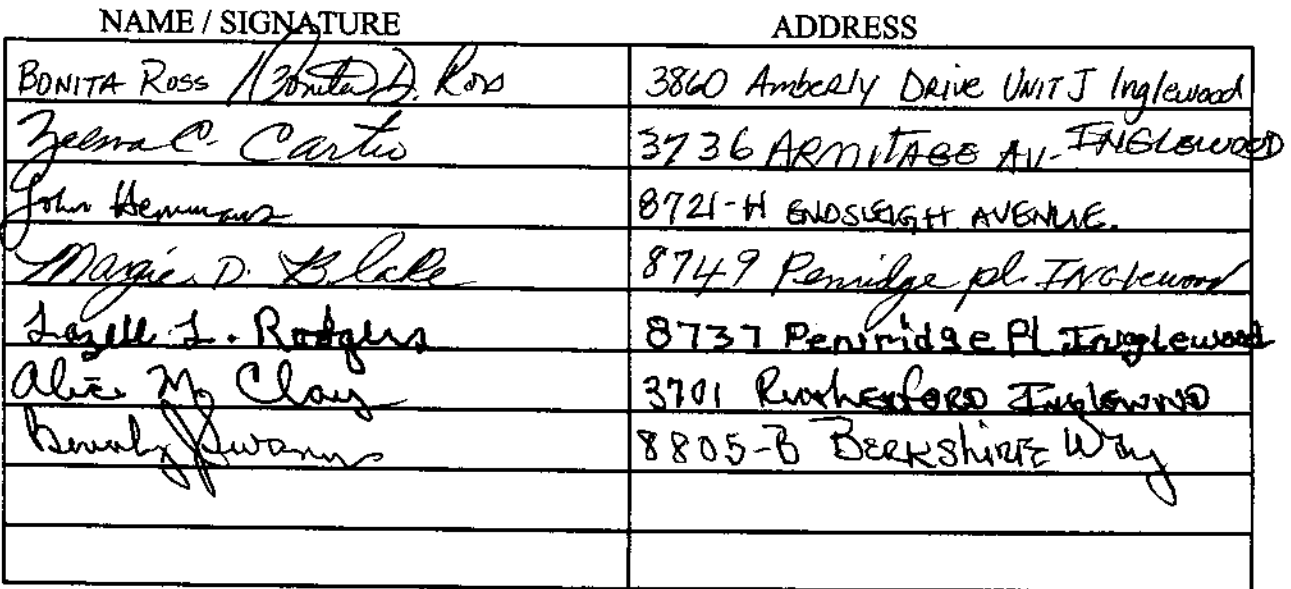 NAME / SIGNATURE ADDRESS
BONITA ROSS / Bonita D. Ross 3860 Amberly Drive UNIT J Inglewood
Zelma C. Carter 3736 ARMITAGE AV- INGLEWOOD
John Hemmans 8721-H ENDSLEIGH AVENUE.
Margie D. Blake 8749 Penridge pl. INGlewood
Lozelle L. Rodgers 8737 Penridge Pl Inglewood
Alice M Clay 3701 RutherfORD Inglewood
Beverly 8805-B BERKShIRE Way